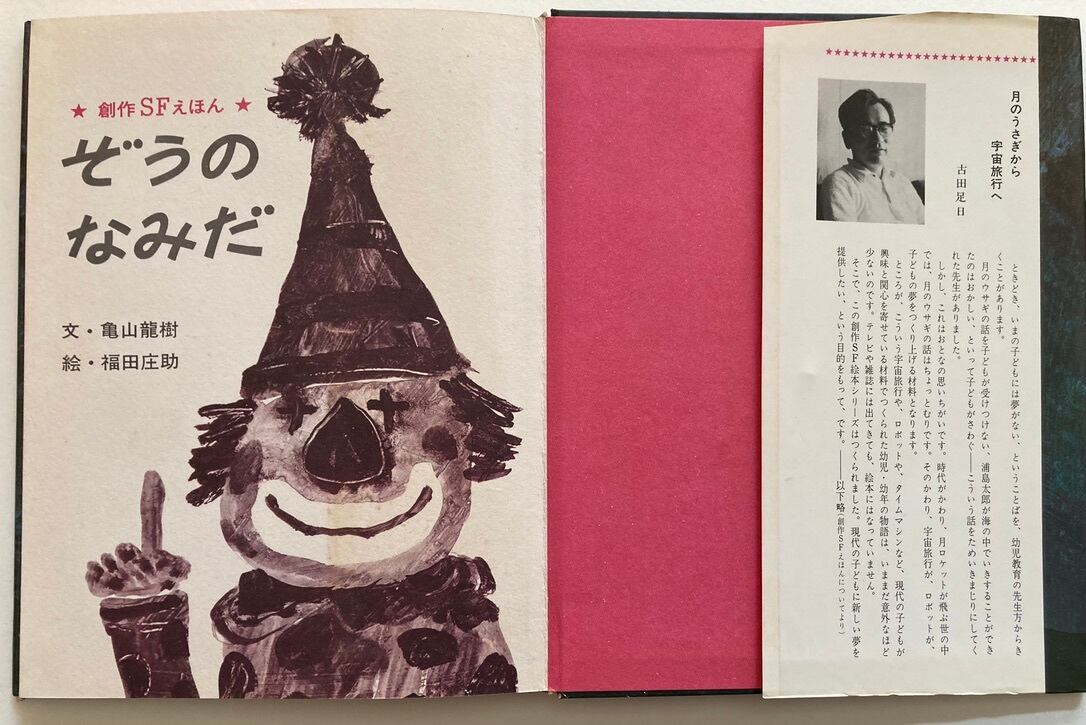 ★ 創作SFえほん ★
ぞうの
なみだ
文・亀山龍樹
絵・福田庄助
★★★★★★★★★★★★★★★★★★★★★★★★
月のうさぎから
宇宙旅行へ
古田足日
ときどき、いまの子どもには夢がない、ということばを、幼児教育の先生方からき
くことがあります。
月のウサギの話を子どもが受けつけない、浦島太郎が海の中でいきすることができ
たのはおかしい、といって子どもがさわぐ——こういう話をためいきまじりにしてく
れた先生がありました。
しかし、これはおとなの思いちがいです。時代がかわり、月ロケットが飛ぶ世の中
では、月のウサギの話はちょっとむりです。そのかわり、宇宙旅行が、ロボットが、
子どもの夢をつくり上げる材料となります。
ところが、こういう宇宙旅行や、ロボットや、タイムマシンなど、現代の子どもが
興味と関心を寄せている材料でつくられた幼児・幼年の物語は、いままだ意外なほど
少ないのです。テレビや雑誌には出てきても、絵本にはなっていません。
そこで、この創作SF絵本シリーズはつくられました。現代の子どもに新しい夢を
提供したい、という目的をもって、です。——以下略(創作SFえほんについてより)